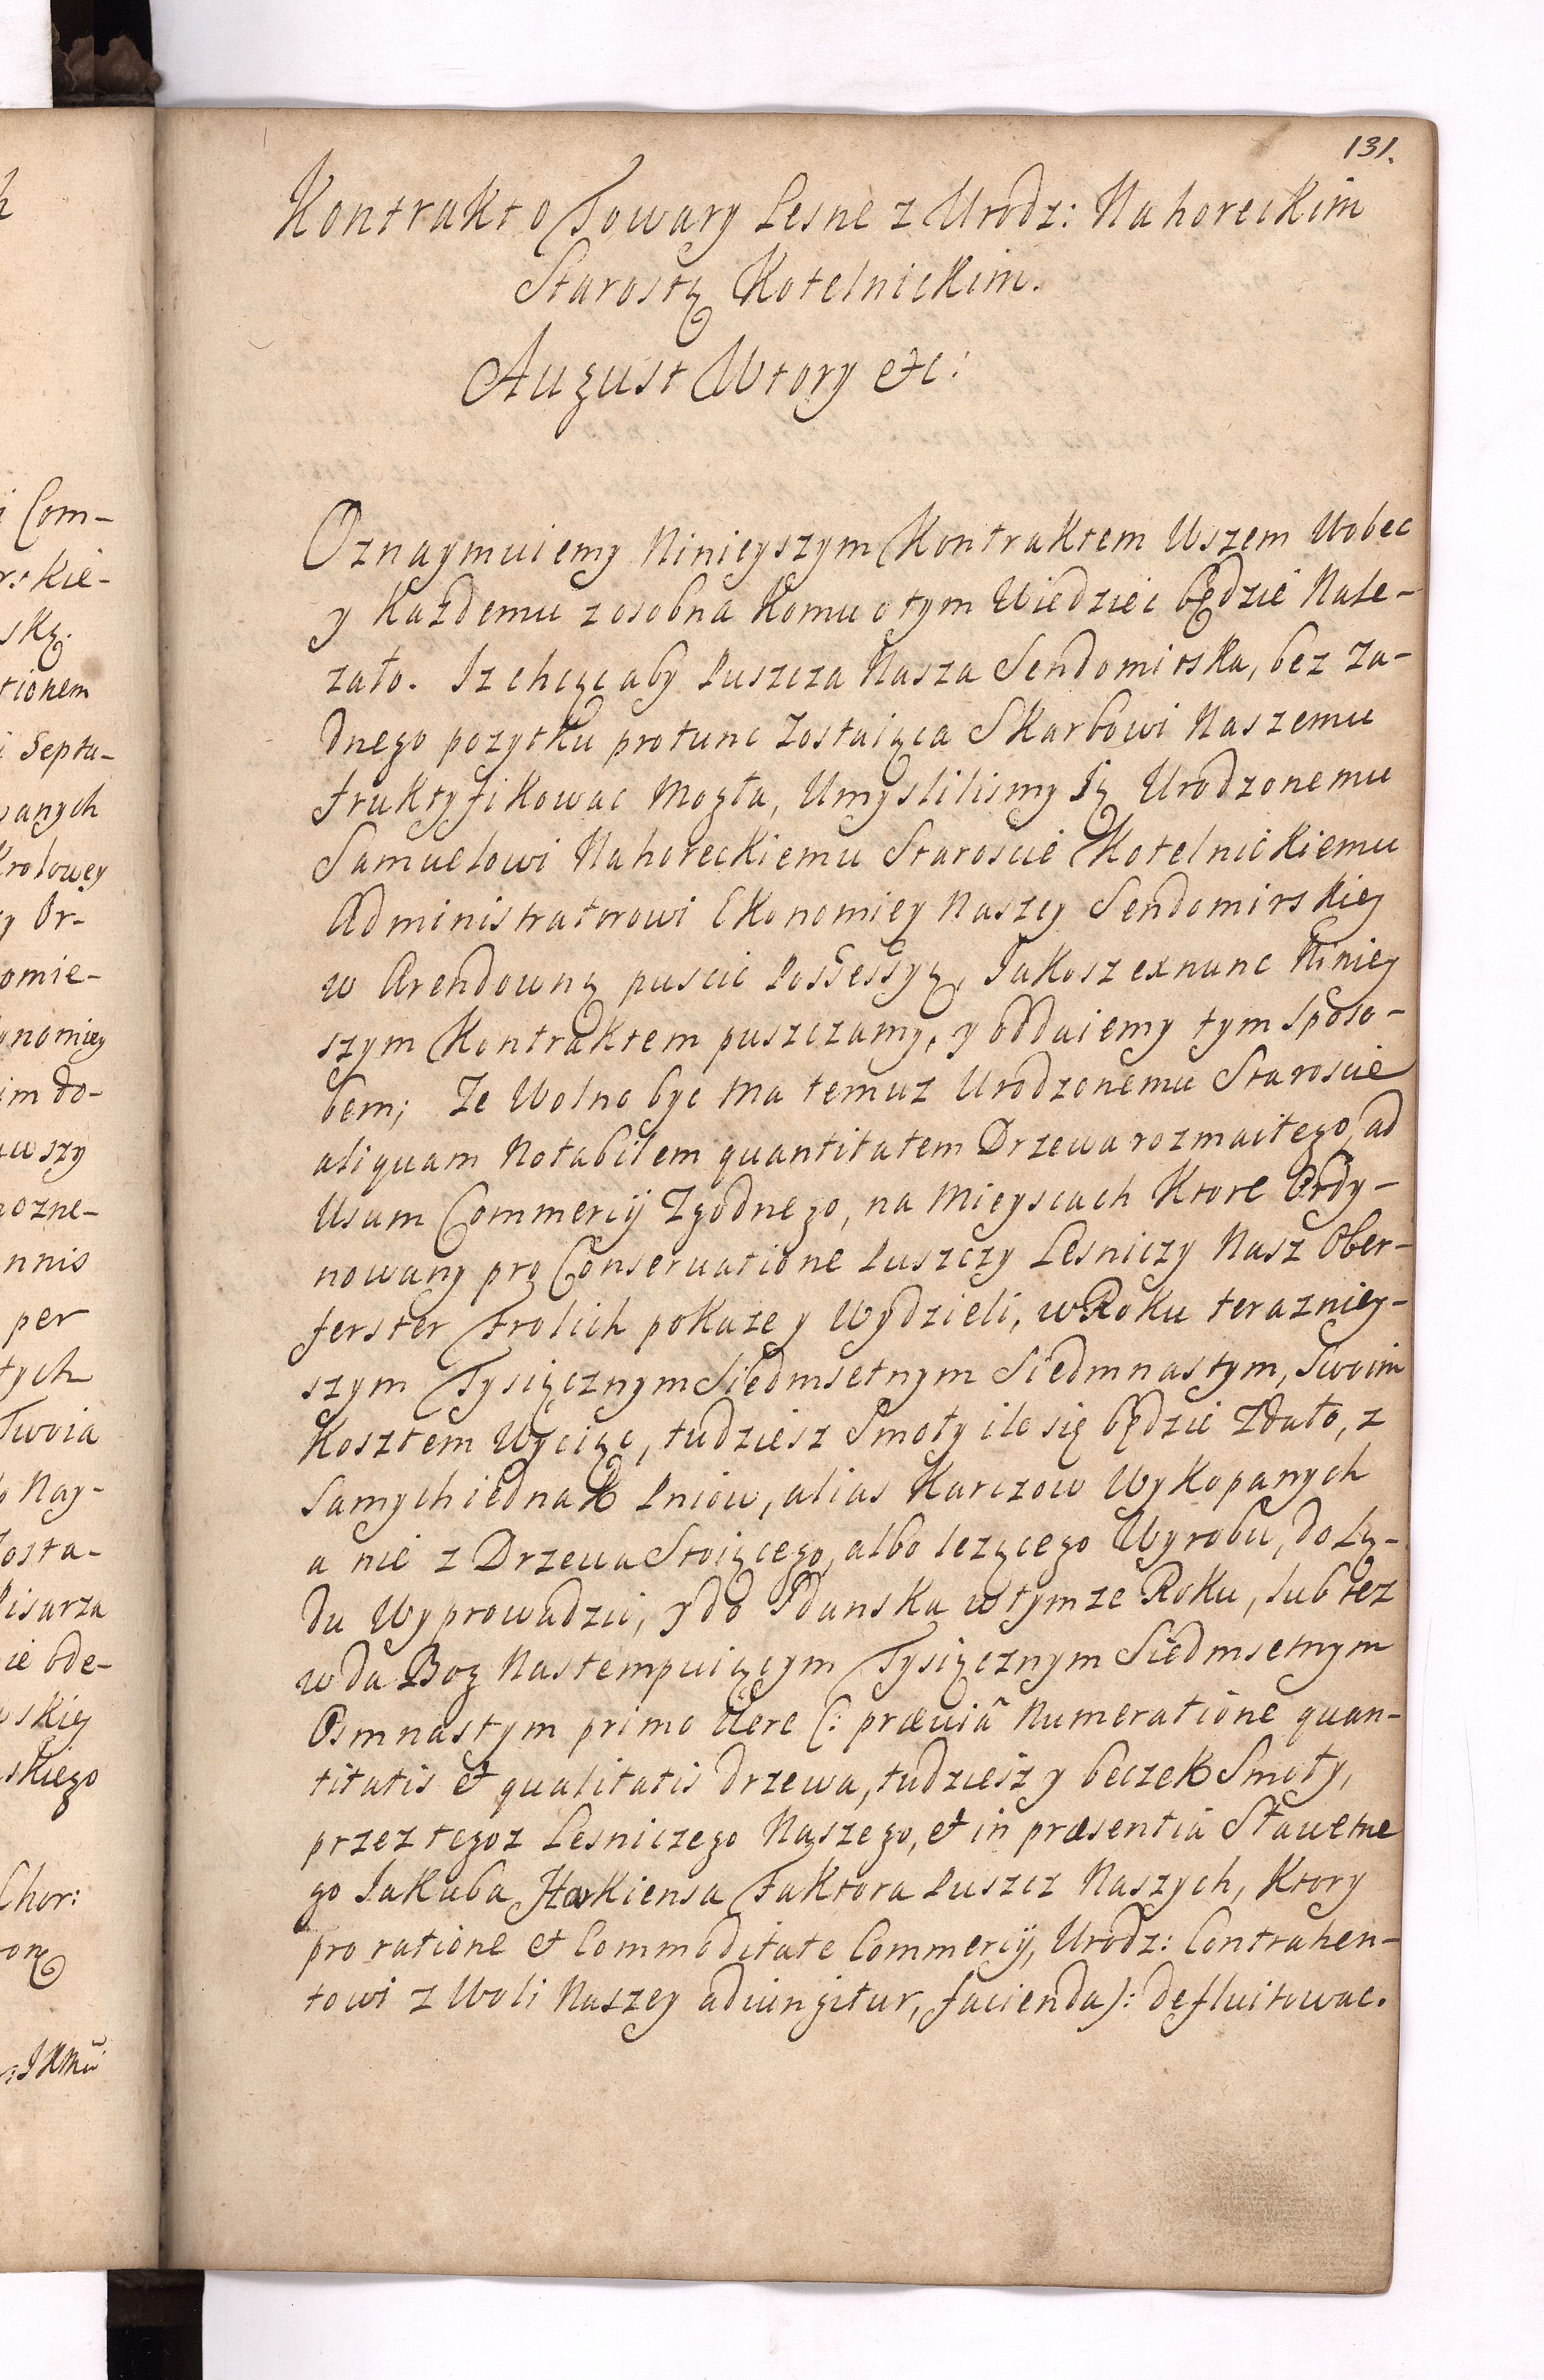 131.
Kontrakt o Towary Lesne z Urodz: Nahoreckim
Starostą Kotelnickim.
August Wtory etc:
Oznaymuiemy Ninieyszym Kontraktem Wszem Wobec
y Kazdemu zosobna Komu o tym Wiedziec będzie Nale-
zało. Iz chcąc aby Puszcza Nasza Sendomirska, bez Za-
dnego pozytku protunc Zostaiąca Skarbowi Naszemu
fruktyfikowac Mogła, Umyslilismy Ią Urodzonemu
Samuelowi Nahoreckiemu Staroscie Kotelnickiemu
Administratorowi Ekonomiey Naszey Sendomirskiey
w Arendowną puscic Possessyą, Iakosz exnunc Niniey
szym Kontraktem puszczamy, y oddaiemy tym Sposo-
bem; Ze Wolno byc Ma temuz Urodzonemu Staroscie
aliquam Notabilem quantitatem Drzewa rozmaitego, ad
Usum Commercij Zgodnego, na Mieyscach Ktore Ordy-
nowany pro Conseruatione Puszczy Lesniczy Nasz Ober-
ferster Frolich pokaze y Wydzieli, w Roku terazniey-
szym Tysiącznym Siedmsetnym Siedmnastym, Swoim
Kosztem Wyciąc, tudziesz Smoły ile się będzie Zdało, z
Samych iednak Pniow, alias Karczow Wykopanych
a nie z Drzewa Stoiącego, albo lezącego Wyrobu, do Lą-
du Wyprowadzic, y do Gdanska w tymze Roku, lub tez
w da Bog Nastempuiącym Tysiącznym Siedmsetnym
Osmnastym primo Vere (: præuiâ Numeratione quan-
titatis et qualitatis drzewa, tudziesz y beczek Smoły,
przez tegoz Lesniczego Naszego, et in præsentia Sławetne
go Iakuba Harkiensa Faktora Puszcz Naszych, Ktory
pro ratione et Commoditate Commercij, Urodz: Contrahen-
towi z Woli Naszey adiungitur, facienda): defluitowac.